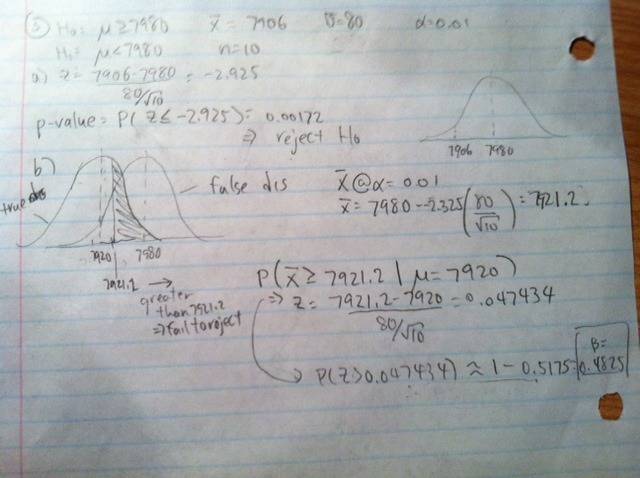 ⑤ H₀ = μ ≥ 7980 x̄ = 7906 σ = 80 α = 0.01
H₁ = μ < 7980 n = 10
a) z = (7906 - 7980) / (80/√10) = -2.925
p-value = P(Z ≤ -2.925) = 0.00172
⇒ reject H₀
7906 7980
b)
true dis
false dis
7920 7980
7921.2 →
greater
than 7921.2
⇒ fail to reject
x̄ @ α = 0.01
x̄ = 7980 - 2.325 (80/√10) = 7921.2
P(x̄ ≥ 7921.2 | μ = 7920)
⇒ z = (7921.2 - 7920) / (80/√10) = 0.047434
P(Z > 0.047434) ≈ 1 - 0.5175 = 0.4825
β =